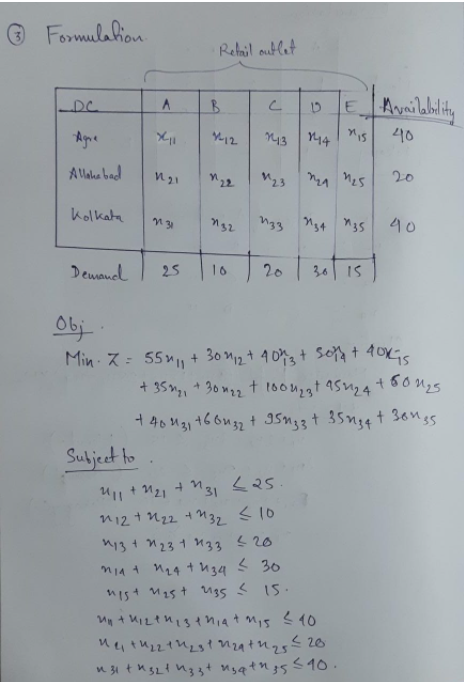 ③ Formulation.
Retail outlet
DC A B C D E Availability
Agre x11 x12 x13 x14 x15 40
Allahabad x21 x22 x23 x24 x25 20
Kolkata x31 x32 x33 x34 x35 40
Demand 25 10 20 30 15
Obj.
Min. Z = 55x11 + 30x12 + 40x13 + 50x14 + 40x15
+ 35x21 + 30x22 + 100x23 + 45x24 + 60x25
+ 40x31 + 60x32 + 95x33 + 35x34 + 30x35
Subject to.
x11 + x21 + x31 ≤ 25.
x12 + x22 + x32 ≤ 10
x13 + x23 + x33 ≤ 20
x14 + x24 + x34 ≤ 30
x15 + x25 + x35 ≤ 15.
x11 + x12 + x13 + x14 + x15 ≤ 40
x21 + x22 + x23 + x24 + x25 ≤ 20
x31 + x32 + x33 + x34 + x35 ≤ 40.